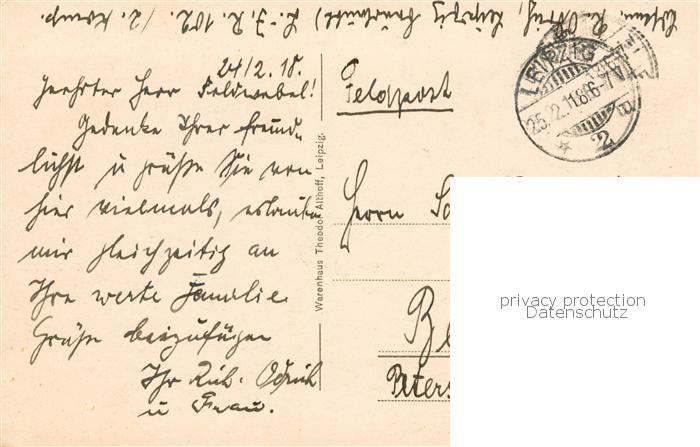 L. J. R. 102. /2. Komp.
24/2. 18.
Geehrter Herr Feldwebel!
Gedenke Ihrer freund-
lichst u grüße Sie von
hier vielmals, erlaube
mir gleichzeitig an
Ihre werte Familie
Grüße beizufügen
Ihr Rud.
u Frau.
Warenhaus Theodor Althoff, Leipzig.
Feldpost
LEIPZIG
25.2.11.8.6-7V
* 2
Herrn
privacy protection
Datenschutz